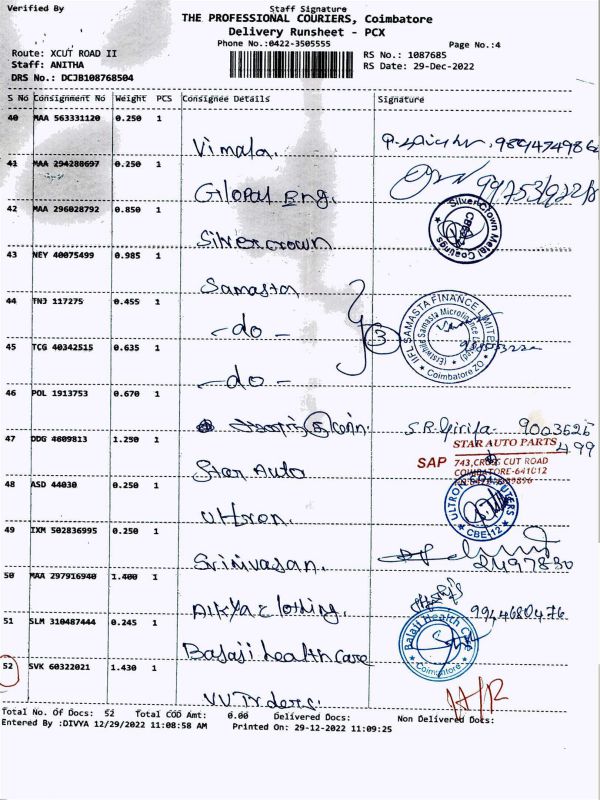 Verified By Staff Signature
THE PROFESSIONAL COURIERS, Coimbatore
Delivery Runsheet - PCX
Phone No.:0422-3505555 Page No.:4
Route: XCUT ROAD II RS No.: 1087685
Staff: ANITHA RS Date: 29-Dec-2022
DRS No.: DCJB108768504
S No Consignment No Weight PCS Consignee Details Signature
40 MAA 563331120 0.250 1
Vimala.
41 MAA 294280697 0.250 1
Global Eng.
42 MAA 296028792 0.850 1
Silvercrown
Silver Crown Metal Coatings
43 NEY 40075499 0.985 1
Samasta
44 TNJ 117275 0.455 1
-do-
3
IIFL SAMASTA FINANCE LIMITED
(Erstwhile Samasta Microfinance Limited)
Coimbatore ZO
45 TCG 40342515 0.635 1
-do-
46 POL 1913753 0.670 1
S.R. Girija- 9003625
499
47 DDG 4609813 1.250 1
Star Auto
STAR AUTO PARTS
SAP 743, CROSS CUT ROAD
COIMBATORE-641012
48 ASD 44030 0.250 1
Ultron.
ULTRON COMPUTERS
CBE-12
49 IXM 502836995 0.250 1
Srinivasan.
2497830
50 MAA 297916940 1.400 1
Alkya clothing.
9944680476
51 SLM 310487444 0.245 1
Balaji health care
Balaji Health Care
Coimbatore
52 SVK 60322021 1.430 1
VV Trders.
Total No. Of Docs: 52 Total COD Amt: 0.00 Delivered Docs: Non Delivered Docs:
Entered By :DIVYA 12/29/2022 11:08:58 AM Printed On: 29-12-2022 11:09:25